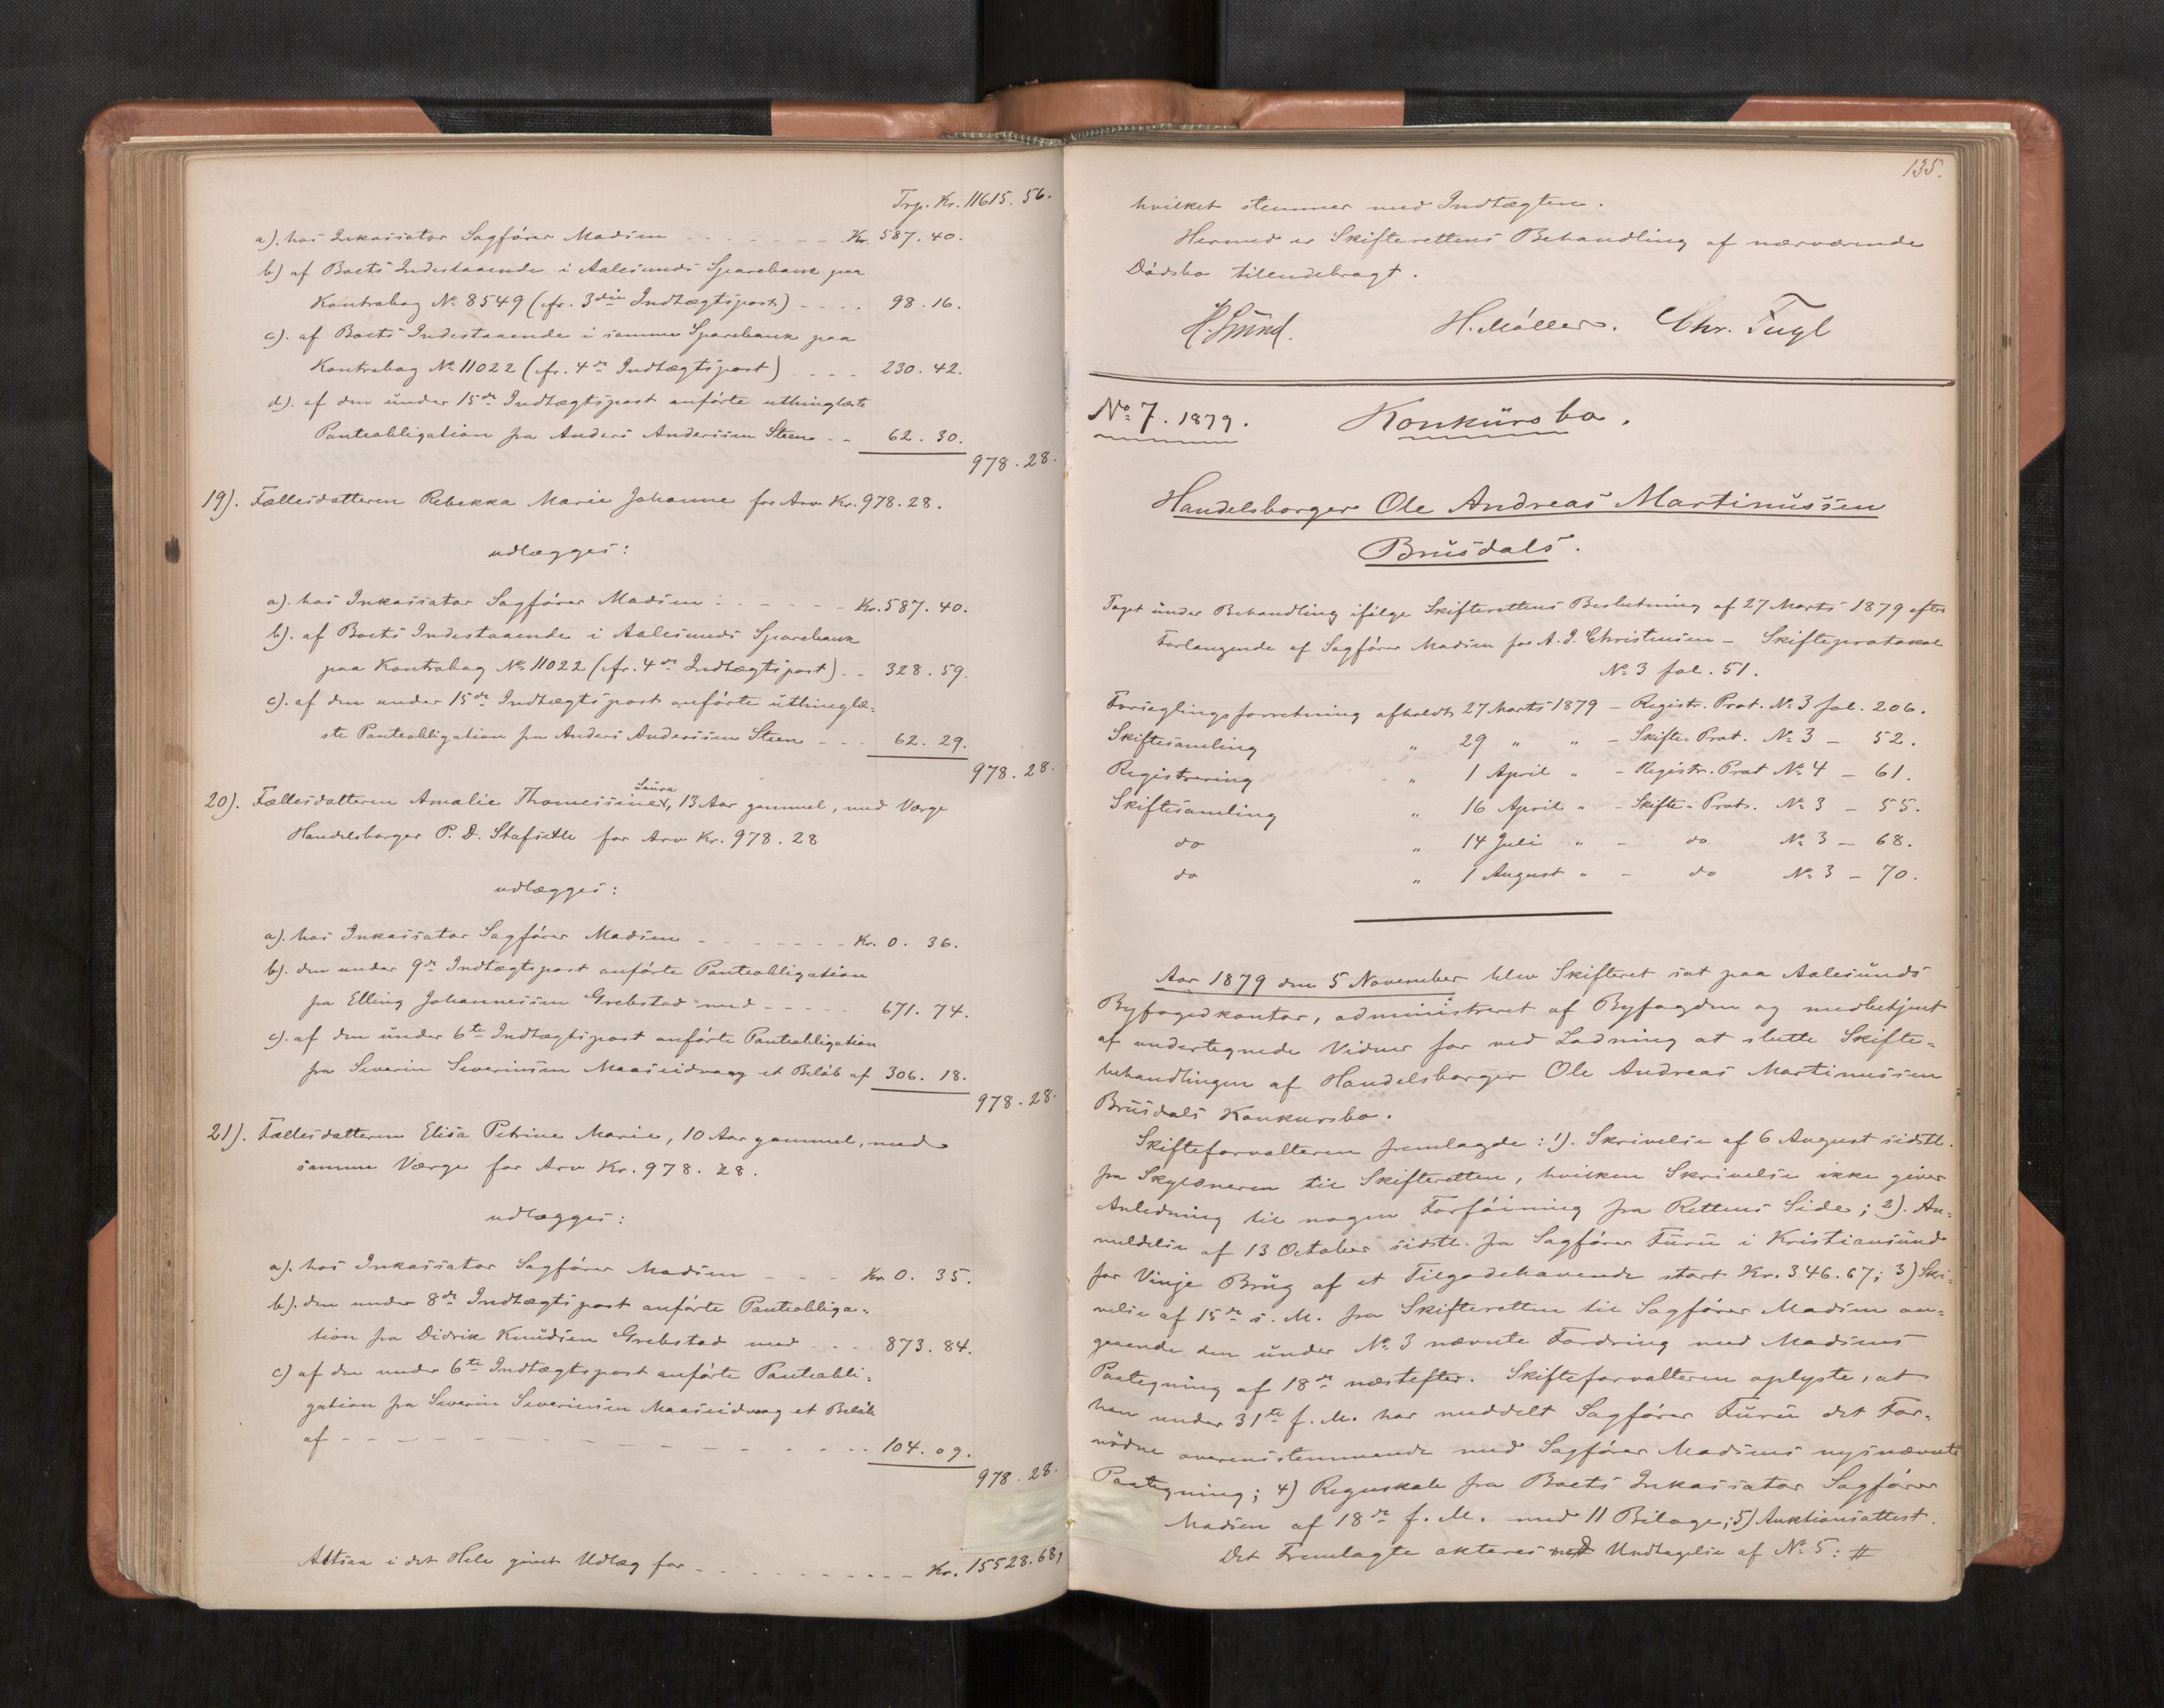 Trp. Kr. 11615. 56.
a). hos Inkassator Sagfører Madsen - - - - - - - Kr. 587. 40.
b) af Boets Indestaaende i Aalesunds Sparebank paa
Kontrabog No 8549 (cfr. 3die Indtægtspost) - - - - 98. 16.
c). af Boets Indestaaende i samme Sparebank paa
Kontrabog No 11022 (cfr. 4de Indtægtspost) - - - - 230. 42.
d). af den under 15de Indtægtspost anførte uthinglæste
Panteobligation fra Anders Anderssen Steen - - 62. 30.
978. 28.
19). Fællesdatteren Rebekka Marie Johanne for Arv Kr. 978. 28.
udlægges:
a). hos Inkassator Sagfører Madsen - - - - - - Kr. 587. 40.
b). af Boets Indestaaende i Aalesunds Sparebank
paa Kontrabog No 11022 (cfr. 4de Indtægtspost) - - 328. 59.
c). af den under 15de Indtægtspost anførte uthinglæ=
ste Panteobligation fra Anders Anderssen Steen - - - 62. 29.
978. 28.
Laura
20). Fællesdatteren Amalie Thomessine, 13 Aar gammel, med Værge
Handelsborger P. D. Stafseth for Arv Kr. 978. 28
udlægges:
a). hos Inkassator Sagfører Madsen - - - - - - - Kr. 0. 36.
b). den under 9de Indtægtspost anførte Panteobligation
fra Elling Johannessen Grebstad med - - - - - 671. 74.
c). af den under 6te Indtægtspost anførte Panteobligation
fra Severin Severinsen Maaseidvaag et Beløb af 306. 18.
978. 28.
21). Fællesdatteren Elisa Petrine Marie, 10 Aar gammel, med
samme Værge for Arv Kr. 978. 28.
udlægges:
a). hos Inkassator Sagfører Madsen - - - - Kr. 0. 35.
b). den under 8de Indtægtspost anførte Panteobliga=
tion fra Didrik Knudsen Grebstad med - - - - 873. 84.
c) af den under 6te Indtægtspost anførte Panteobli=
gation fra Severin Severinsen Maaseidvaag et Beløb
af - - - - - - - - - - - - - - - 104. 09.
978. 28.
Altsaa i det Hele givet Udlæg for - - - - - - - - - - Kr. 15528. 68,
135.
hvilket stemmer med Indtægten.
Hermed er Skifterettens Behandling af nærværende
Dødsbo tilendebragt.
H. Møller. Chr. Fugl
No 7. 1879. Konkursbo.
Handelsborger Ole Andreas Martinussen
Brusdals.
Taget under Behandling ifølge Skifterettens Beslutning af 27 Marts 1879 efter
Forlangende af Sagfører Madsen for A. J. Christensen - Skifteprotokol
No 3 fol. 51.
Forseglingsforretning afholdt 27 Marts 1879 - Registr. Prot. No 3 fol. 206.
Skiftesamling " 29 " " - Skifte-Prot. No 3 - 52.
Registrering " 1 April " - Registr. Prot No 4 - 61.
Skiftesamling " 16 April " - Skifte-Prot. No 3 - 55.
do " 14 Juli " - do No 3 - 68.
do " 1 August " - do No 3 - 70.
Aar 1879 den 5 November blev Skifteret sat paa Aalesunds
Byfogedkontor, administreret af Byfogden og medbetjent
af undertegnede Vidner for ved Lodning at slutte Skifte=
behandlingen af Handelsborger Ole Andreas Martinussen
Brusdals Konkursbo.
Skifteforvalteren fremlagde: 1). Skrivelse af 6 August sidstl.
fra Skyldneren til Skifteretten, hvilken Skrivelse ikke giver
Anledning til nogen Forføining fra Rettens Side; 2). An=
meldelse af 13 October sidstl. fra Sagfører Furu i Kristiansund
for Vinje Brug af et Tilgodehavende stort Kr. 346. 67; 3) Skri=
velse af 15de s. M. fra Skifteretten til Sagfører Madsen an=
gaaende den under No 3 nævnte Fordring med Madsens
Paategning af 18de næstefter. Skifteforvalteren oplyste, at
han under 31te f. M. har meddelt Sagfører Furu det For=
nødne overensstemmende med Sagfører Madsens nysnævnte
Paategning; 4) Regnskab fra Boets Inkassator Sagfører
Madsen af 18de f. M. med 11 Bilage; 5) Auktionsattest.
Det Fremlagte akteres med Undtagelse af No 5: #